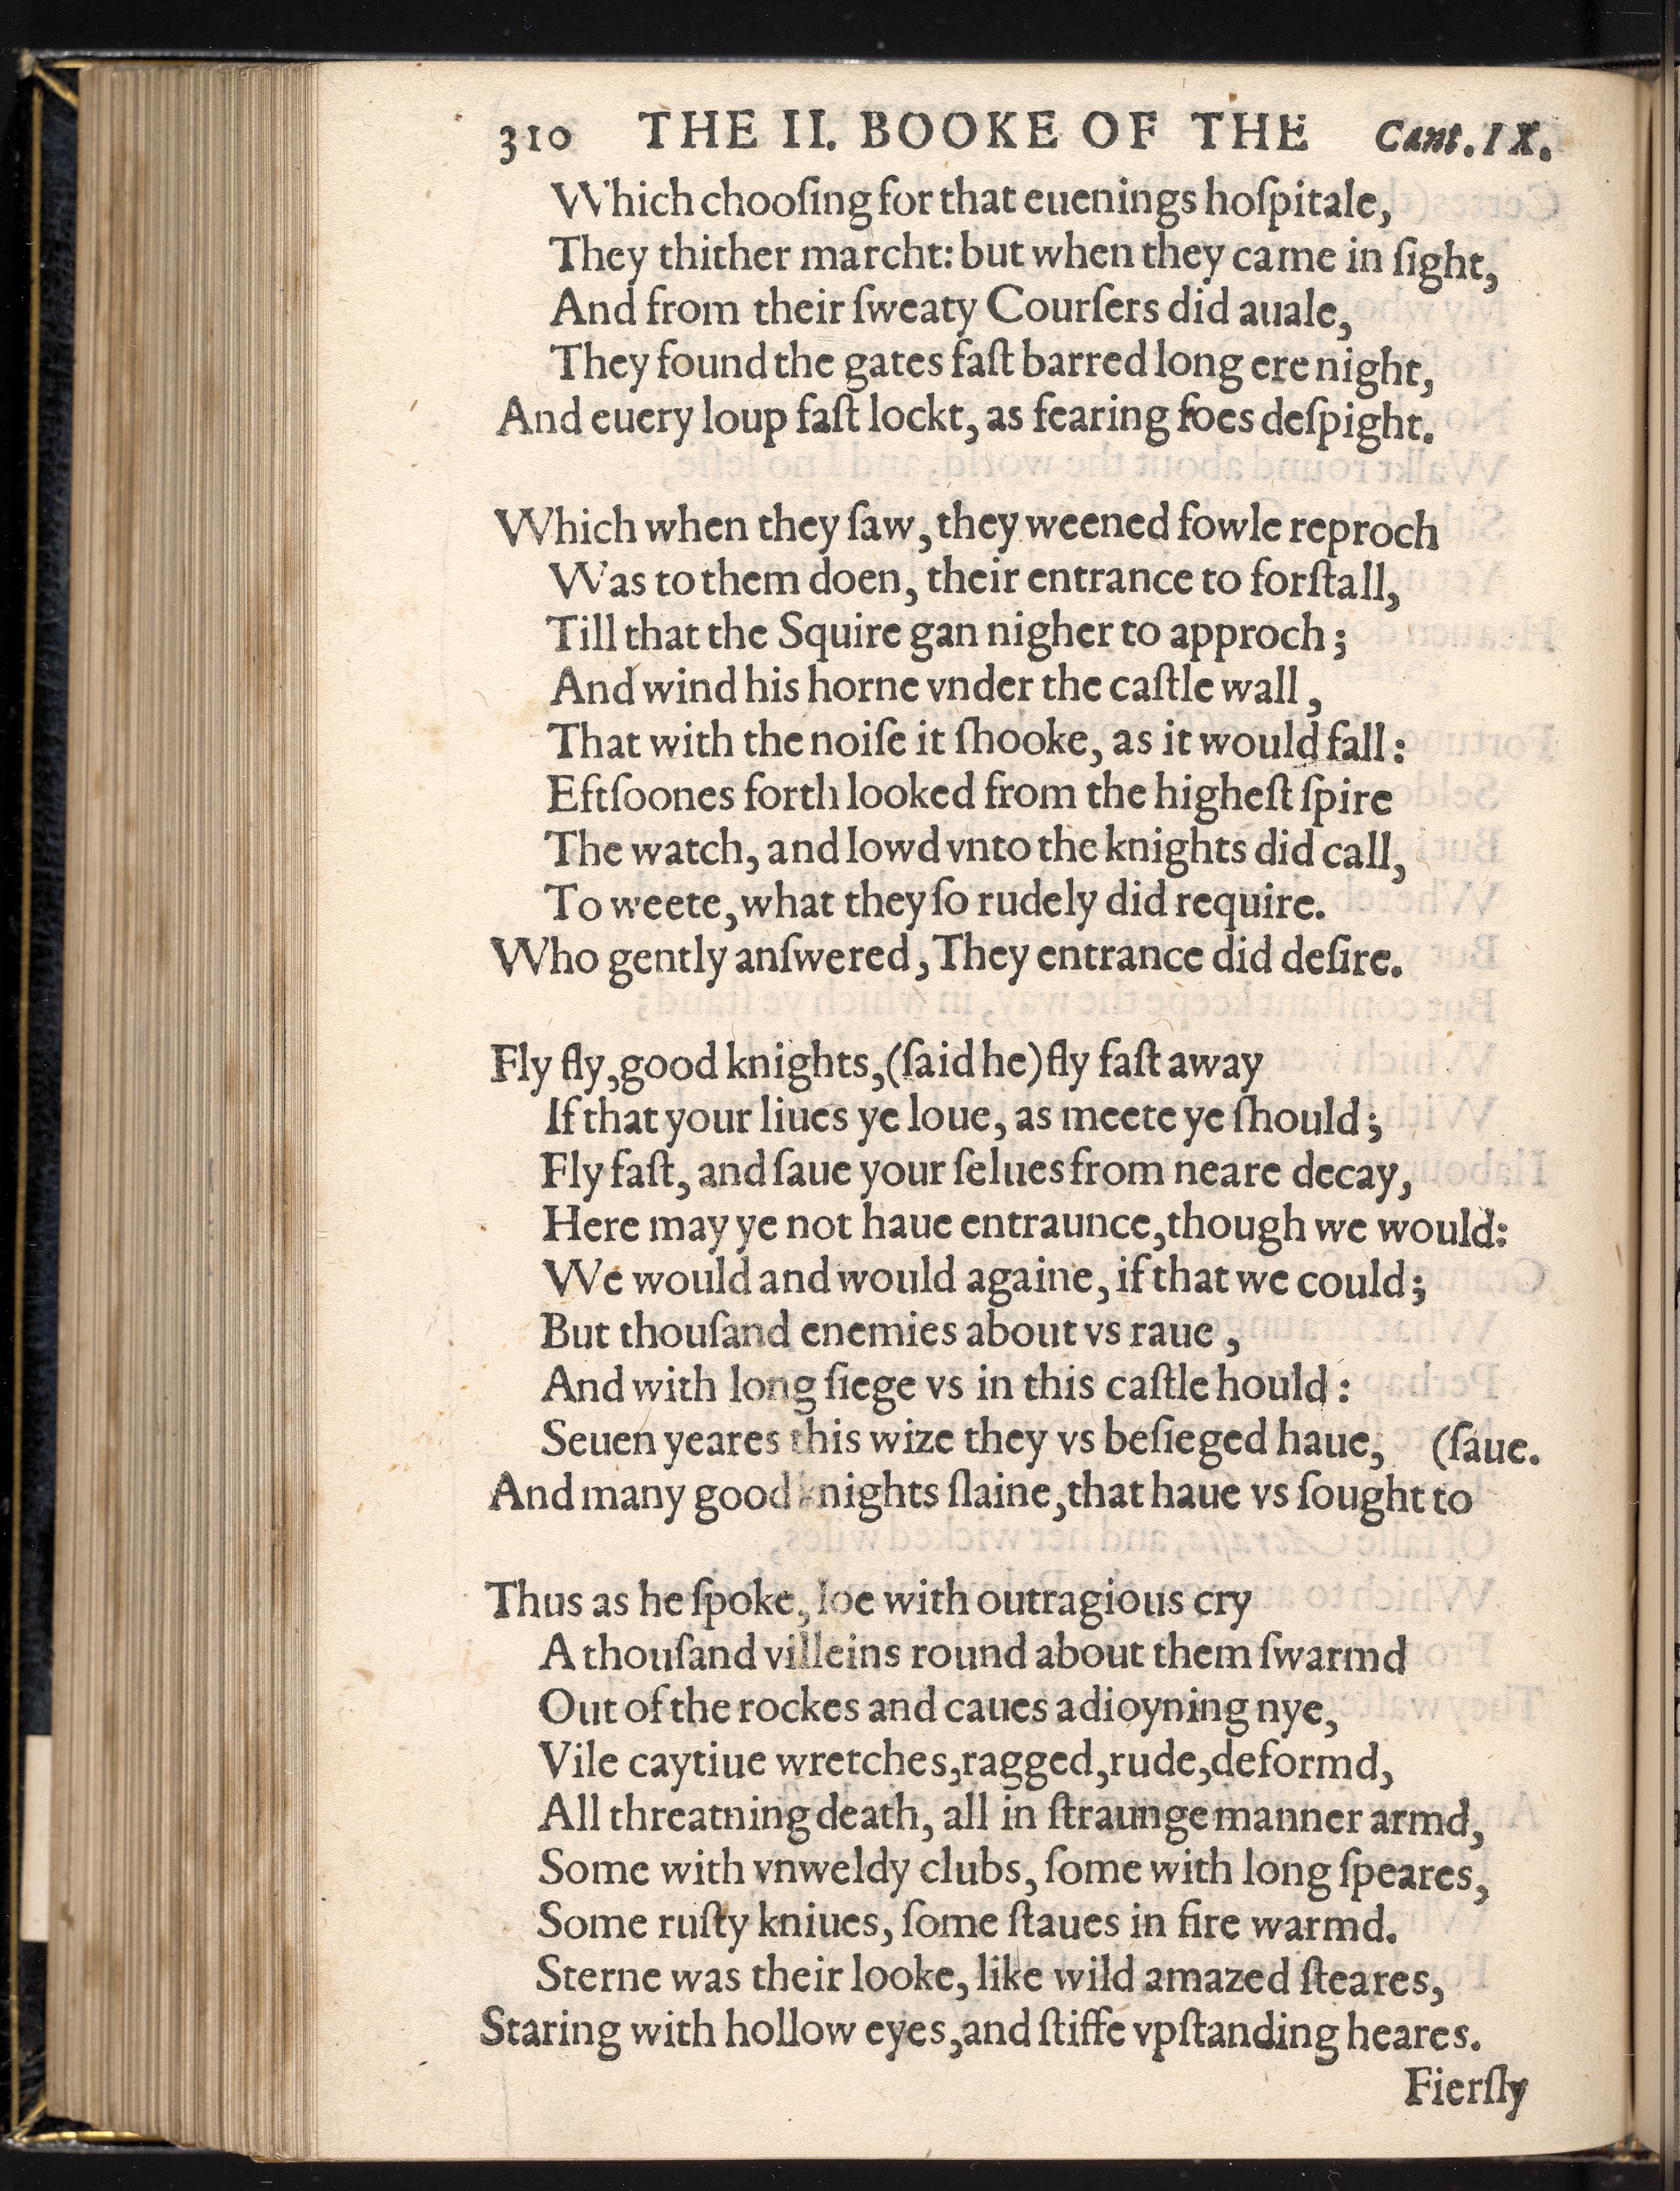 310 THE II. BOOKE OF THE Cant. IX.
Which chooſing for that euenings hoſpitale,
They thither marcht: but when they came in ſight,
And from their ſweaty Courſers did auale,
They found the gates faſt barred long ere night,
And euery loup faſt lockt, as fearing foes deſpight.
Which when they ſaw, they weened fowle reproch
Was to them doen, their entrance to forſtall,
Till that the Squire gan nigher to approch;
And wind his horne vnder the caſtle wall,
That with the noiſe it ſhooke, as it would fall:
Eftſoones forth looked from the higheſt ſpire
The watch, and lowd vnto the knights did call,
To weete, what they ſo rudely did require.
Who gently anſwered, They entrance did deſire.
Fly fly, good knights, (ſaid he) fly faſt away
If that your liues ye loue, as meete ye ſhould;
Fly faſt, and ſaue your ſelues from neare decay,
Here may ye not haue entraunce, though we would:
We would and would againe, if that we could;
But thouſand enemies about vs raue,
And with long ſiege vs in this caſtle hould:
Seuen yeares this wize they vs beſieged haue, (ſaue.
And many good knights ſlaine, that haue vs ſought to
Thus as he ſpoke, loe with outragious cry
A thouſand villeins round about them ſwarmd
Out of the rockes and caues adioyning nye,
Vile caytiue wretches, ragged, rude, deformd,
All threatning death, all in ſtraunge manner armd,
Some with vnweldy clubs, ſome with long ſpeares,
Some ruſty kniues, ſome ſtaues in fire warmd.
Sterne was their looke, like wild amazed ſteares,
Staring with hollow eyes, and ſtiffe vpſtanding heares.
Fierſly